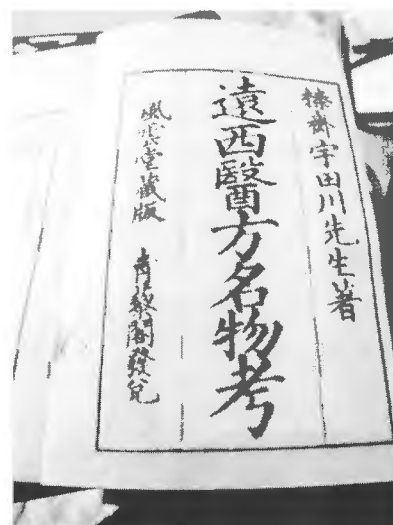 榛齋宇田川先生著
遠西醫方名物考
風雲堂藏版　青藜閣發兌